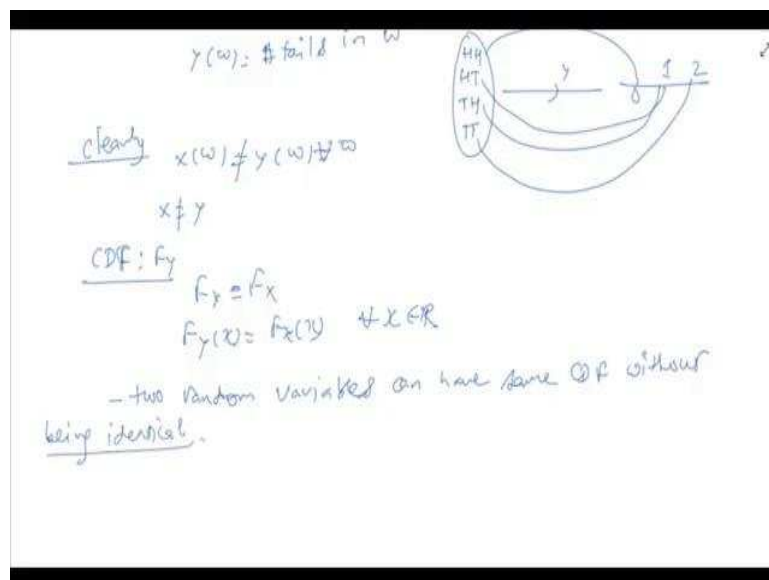 Y(ω): # tails in ω
HH
HT
TH
TT
Y
0 1 2
Clearly X(ω) ≠ Y(ω) ∀ ω
X ≠ Y
CDF: F_Y
F_Y = F_X
F_Y(x) = F_X(x) ∀ x ∈ ℝ
- two random variables can have same CDF without
being identical.